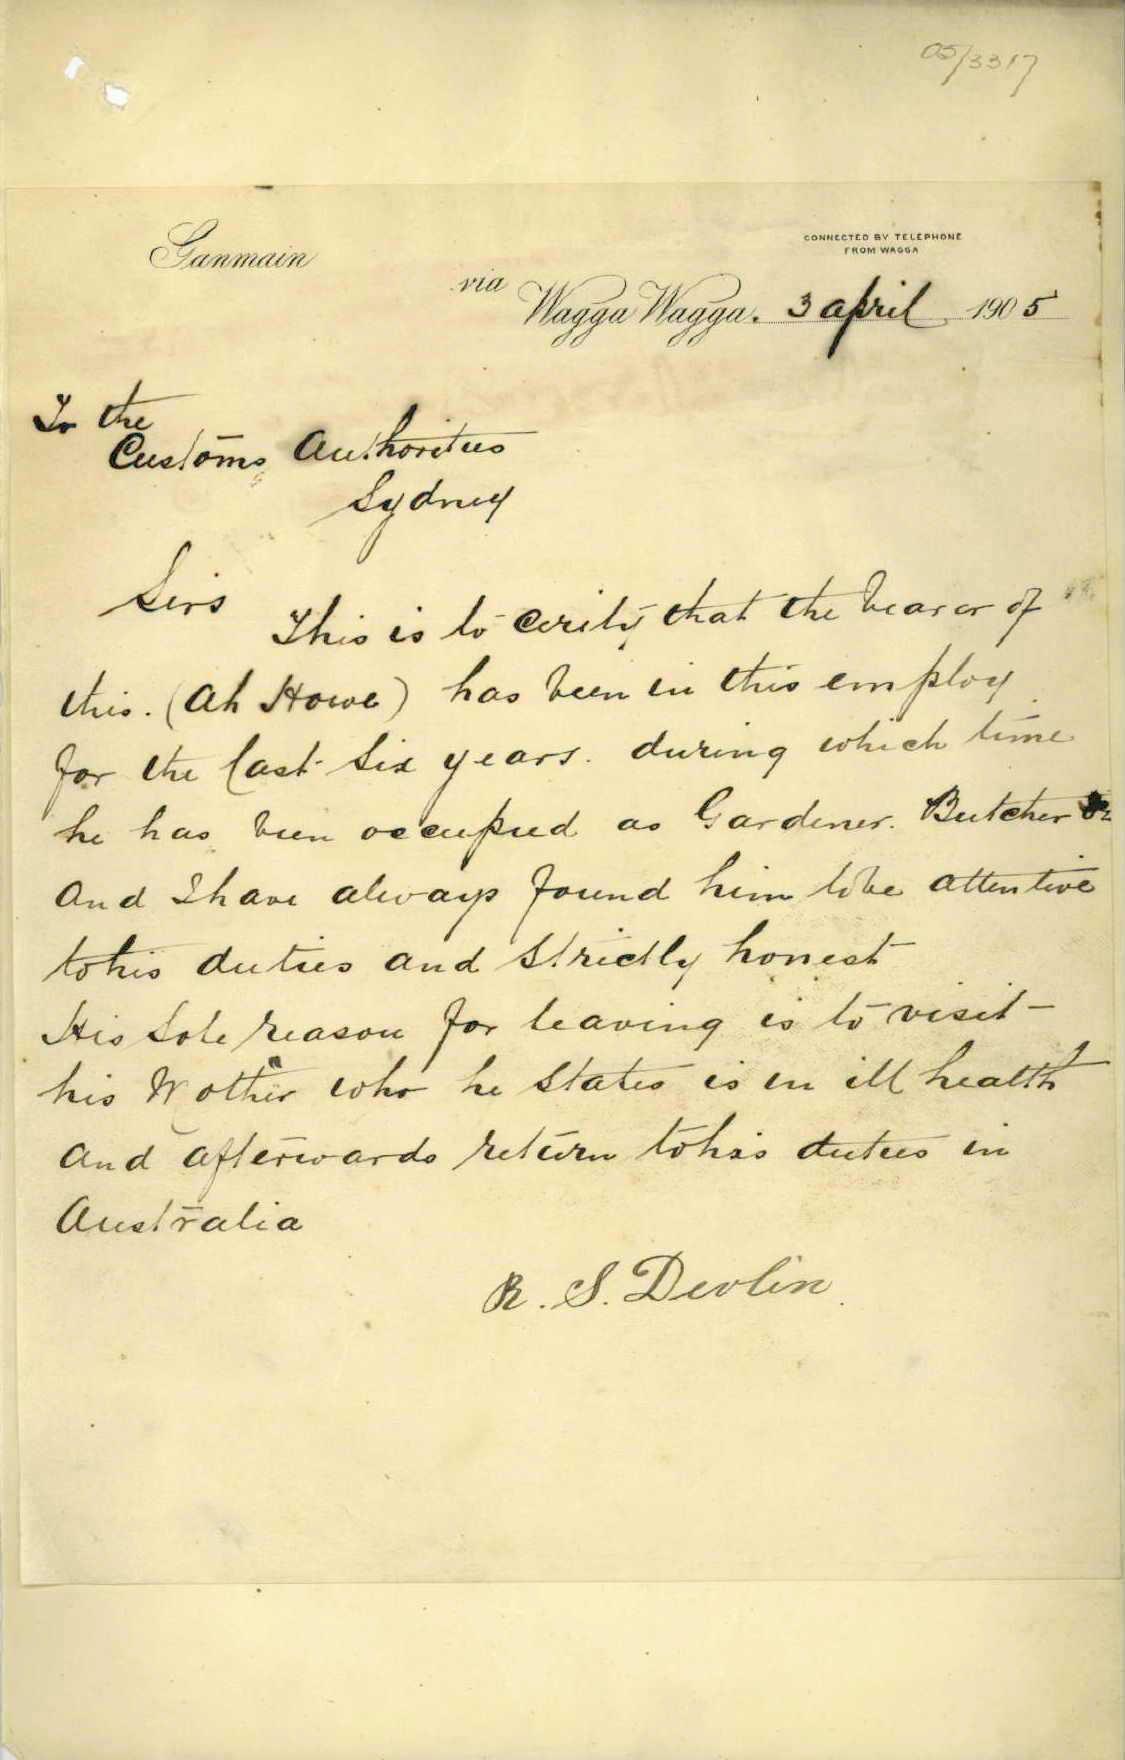 05/3317
Ganmain
CONNECTED BY TELEPHONE
FROM WAGGA
via
Wagga Wagga. 3 april 1905
To the
Customs Authorities
Sydney
Sirs
This is to cerity that the bearer of
this. (Ah Howe) has been in this employ
for the last six years. during which time
he has been occupied as Gardener. Butcher &c
and I have always found him to be attentive
to his duties and strictly honest
His Sole reason for leaving is to visit
his Mother who he states is in ill health
and afterwards return to his duties in
Australia
R. S. Devlin